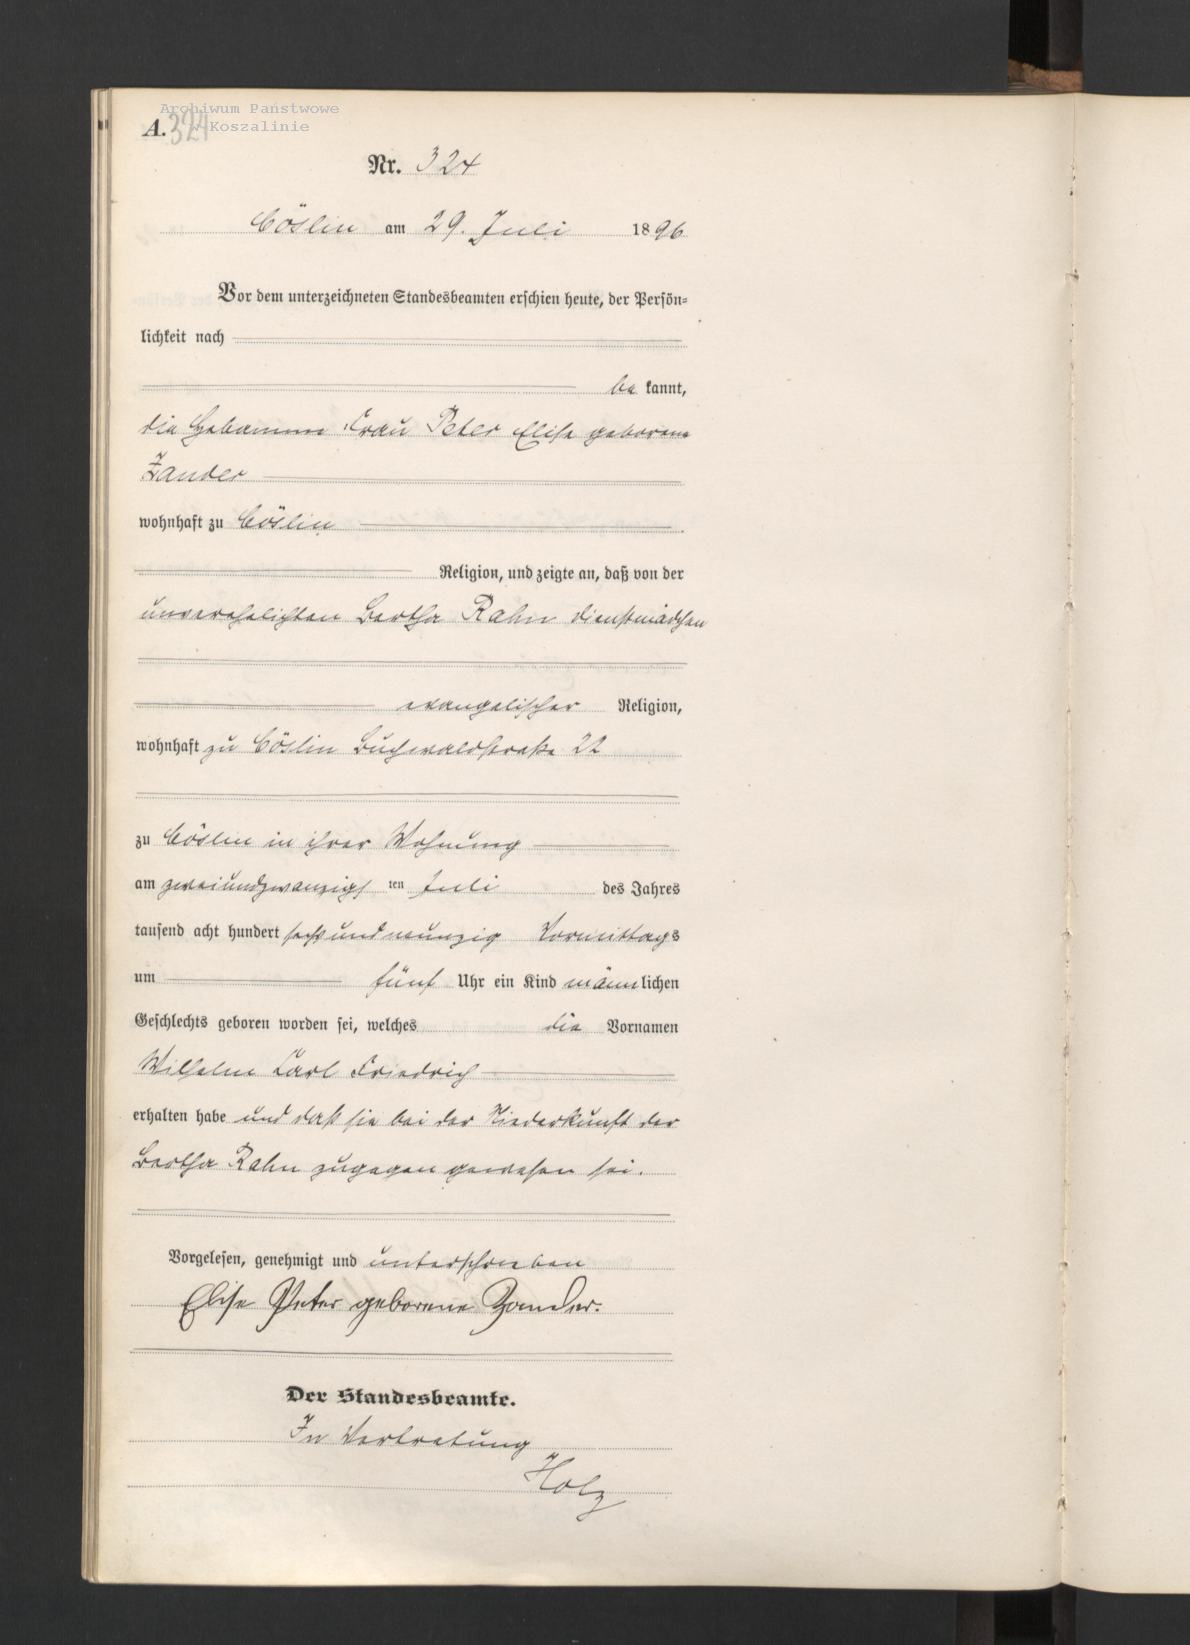 Archiwum Państwowe
w Koszalinie
A. 324
Nr. 324
Cöslin am 29. Juli 1896
Vor dem unterzeichneten Standesbeamten erschien heute, der Persön-
lichkeit nach
be kannt,
die Hebamme Frau Peter Elise geborene
Zander
wohnhaft zu Cöslin
Religion, und zeigte an, daß von der
unverehelichten Bertha Rahn Dienstmädchen
evangelischer Religion,
wohnhaft zu Cöslin Buchwaldstraße 22
zu Cöslin in ihrer Wohnung
am zweiundzwanzigs ten Juli des Jahres
tausend acht hundert sechsundneunzig Vormittags
um fünf Uhr ein Kind männlichen
Geschlechts geboren worden sei, welches die Vornamen
Wilhelm Carl Friedrich
erhalten habe und daß sie bei der Niederkunft der
Bertha Rahn zugegen gewesen sei.
Vorgelesen, genehmigt und unterschrieben
Elise Peter geborene Zander.
Der Standesbeamte.
In Vertretung
Holz